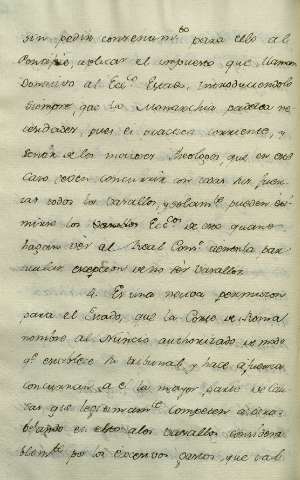 sin pedir consentim.to para ello al
Principe, aplicar el impuesto que llaman
Donativo al Ecc.o Estado. Introduciendolo
siempre, que la Monarchia padezca ne
cesidades, pues es oracion corriente, y
sentir de los maiores Theologos que en ese
caso deben concurrir con todas sus fuer
zas todos los vasallos, y solam.te pueden exi
mirse los vasallos Ecc.cos de eso quando
hagan ver al Real Com.n
excepcion de no ser vasallos.
4. Es una nociva permision
para el Estado, que la Corte de Roma
nombre al Nuncio authorizado de modo
q.e establece su tribunal, y hace afuerza
concurran a el la mayor parte de cau
sas que legitimam.te competen
alos vasallos considera
blem.te por los excesivos gastos, que val